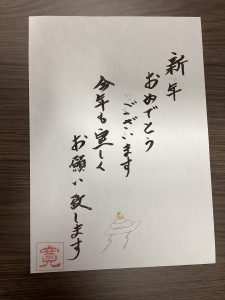 新年
おめでとう
ございます
今年も宜しく
お願い致します
寛